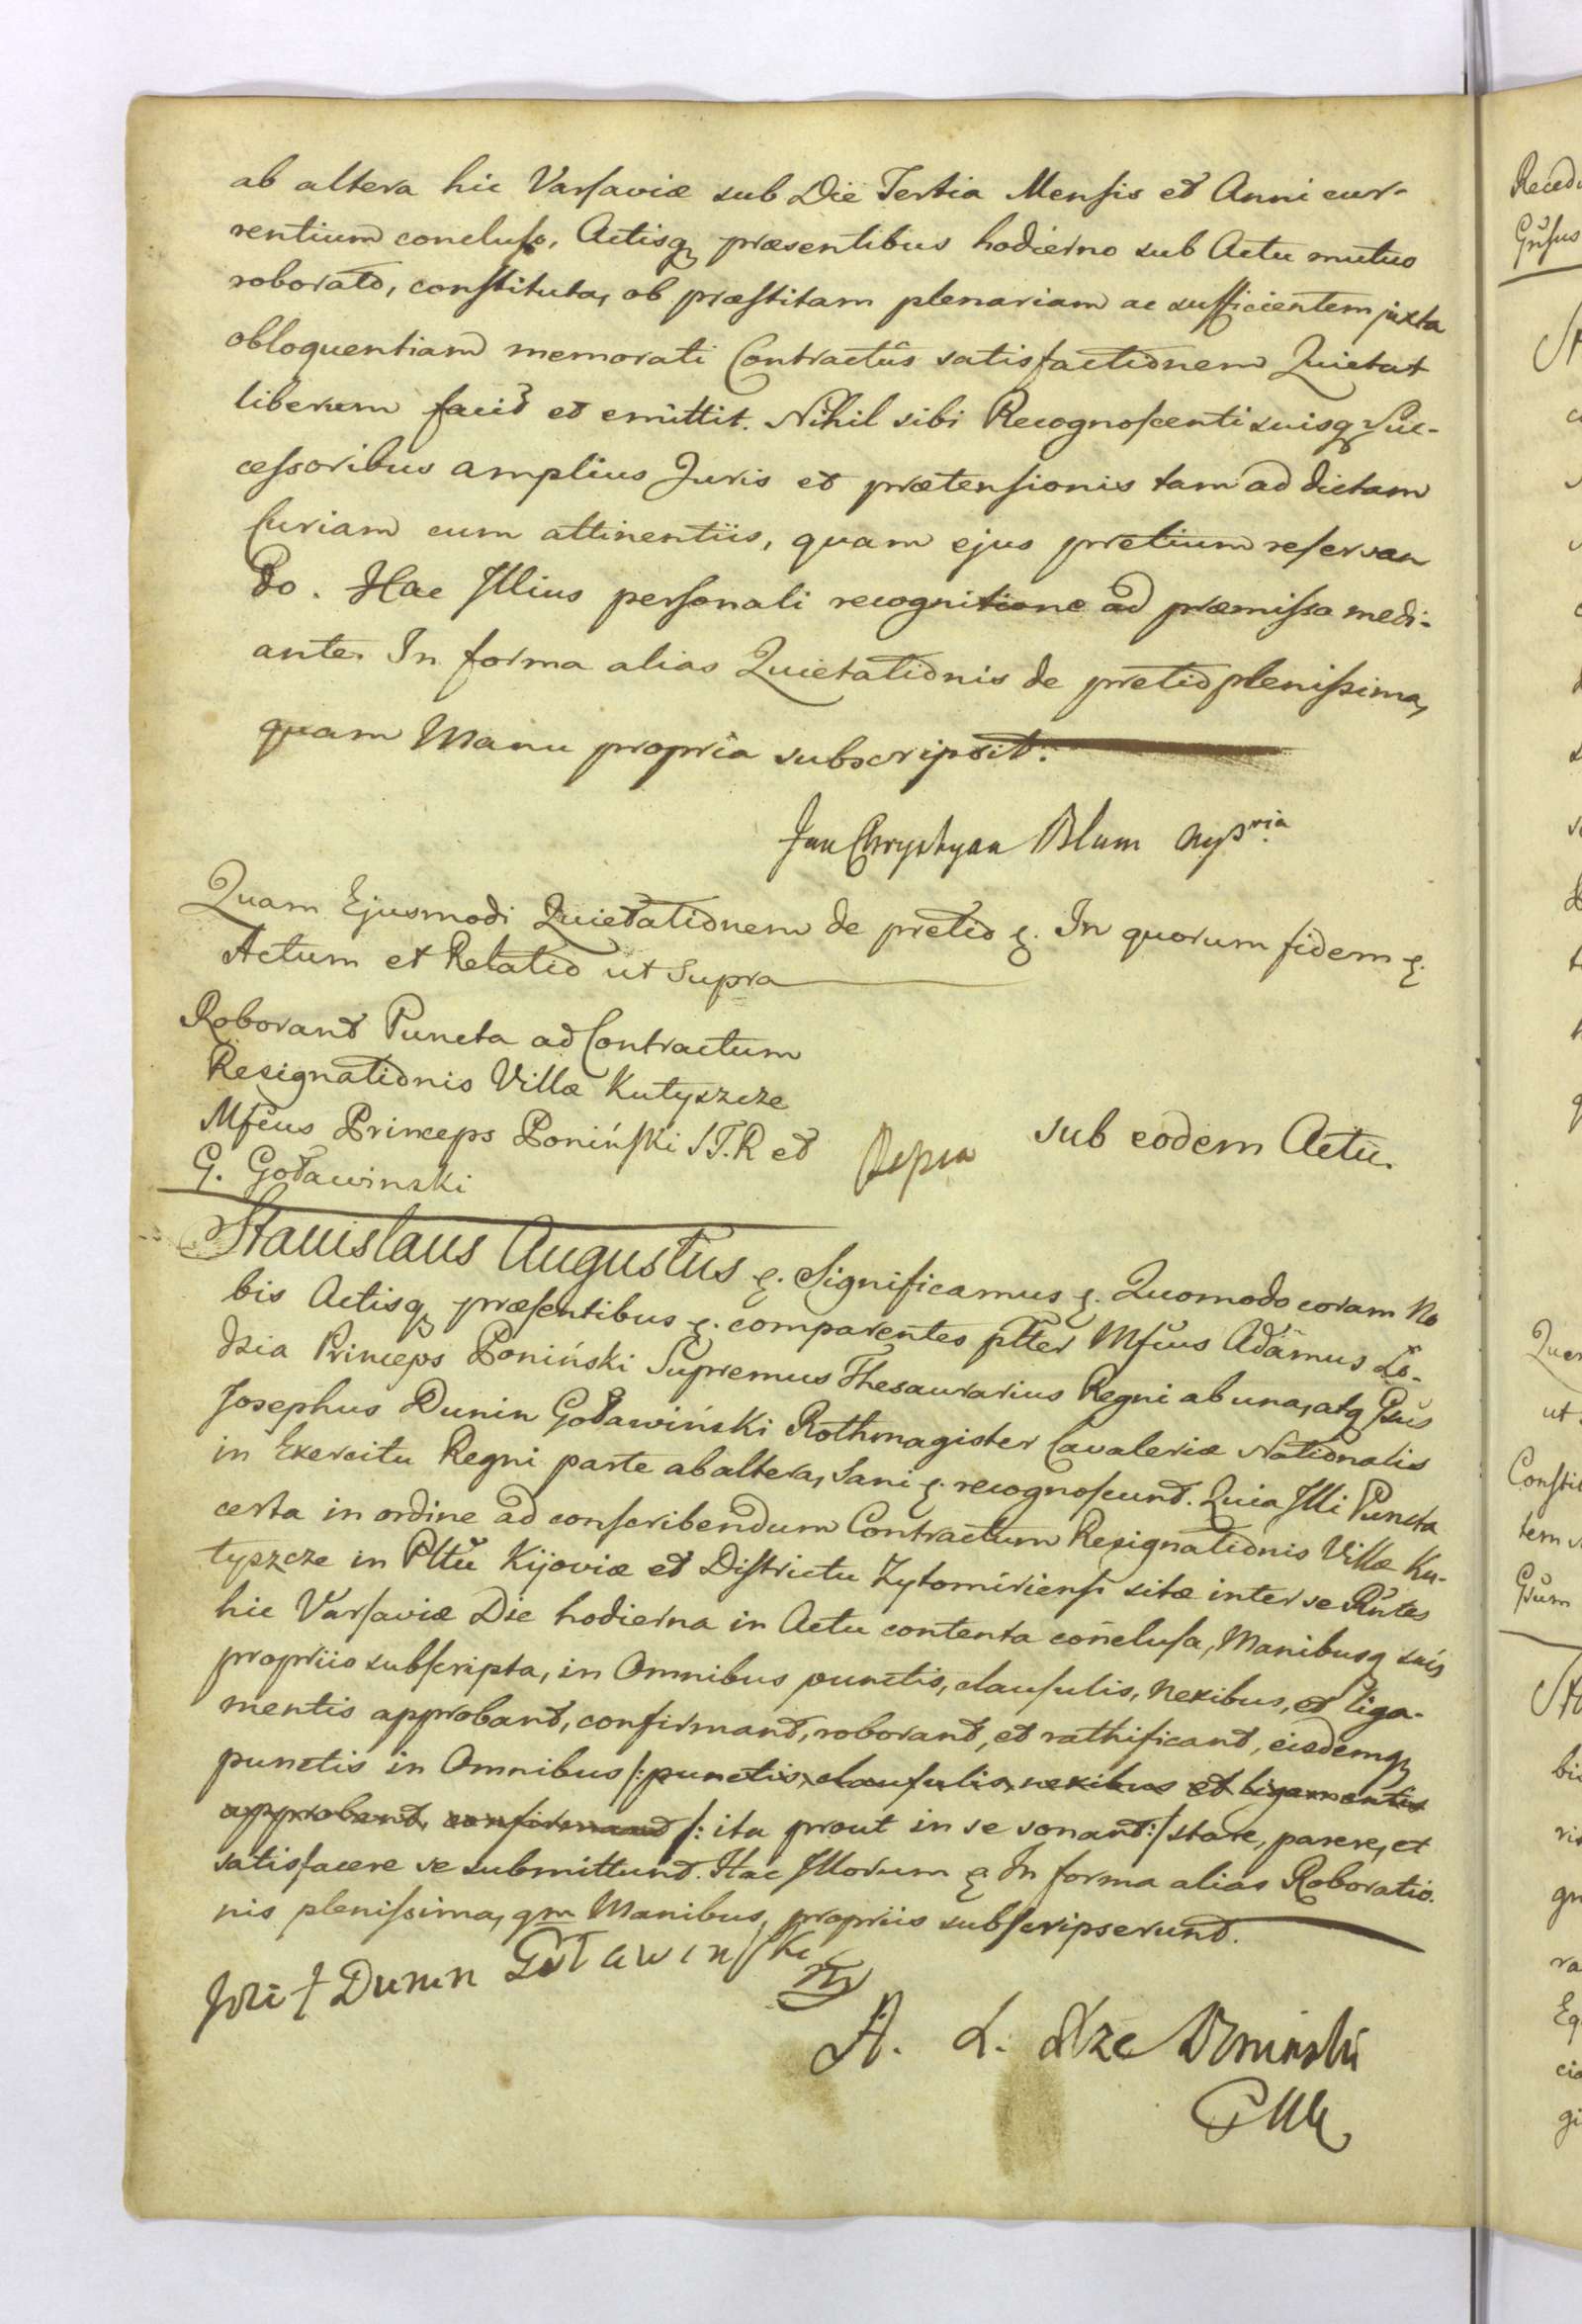 ab altera hic Varsaviæ sub Die Tertia Mensis et Anni cur-
rentium concluso, Actisq præsentibus hodierno sub Actu mutuo
roborato, constituta, ob præstitam plenariam ac sufficientem juxta
obloquentiam memorati Contractûs satisfactionem Quietat
liberum facit et emittit. Nihil sibi Recognoscenti suisq Suc-
cessoribus amplius Juris et prætensionis tam ad dictam
Curiam cum attinentiis, quam ejus pretium reservan
do. Hac Illius personali recognitione ad præmissa medi-
ante. In forma alias Quietationis de pretio plenissima,
quam Manu propria subscripsit.
Jan Chrystyan Blum mp ria
Quam Ejusmodi Quietationem de pretio &. In quorum fidem &.
Actum et Relatio ut Supra
Roborant Puncta ad Contractum
Resignationis Villæ Kutyszcze
Mfcus Princeps Poniński S.T.R et
G. Goławinski
sub eodem Actu.
Stanislaus Augustus &. Significamus &. Quomodo coram No
bis Actisq præsentibus &. comparentes pltter Mfcus Adamus Lo-
dzia Princeps Poniński Supremus Thesaurarius Regni ab una, atq Gsus
Josephus Dunin Goławiński Rothmagister Cavaleriæ Nationalis
in Exercitu Regni parte ab altera, Sani &. recognoscunt. Quia Illi Puncta
certa in ordine ad conscribendum Contractum Resignationis Villæ Ku-
tyszcze in Pltu Kijoviæ et Districtu Zytomiriensi sitæ inter se Rntes
hic Varsaviæ Die hodierna in Actu contenta conclusa, Manibusq suis
propriis subscripta, in Omnibus punctis, clausulis, nexibus, et liga-
mentis approbant, confirmant, roborant, et rathificant, eisdemq
punctis in Omnibus /: punctis, clausulis, nexibus et ligamentis
approbant, confirmant /: ita prout in se sonant :/ stare, parere, et
satisfacere se submittunt. Hac Illorum &. In forma alias Roboratio.
nis plenissima, qm Manibus propriis subscripserunt.
Józef Dunin Goławinski
A. Ł. Xże Poninski